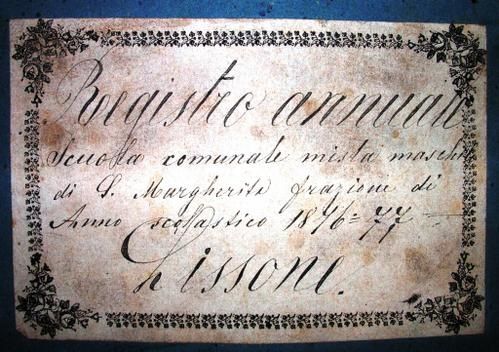 Registro annuale
Scuola comunale mista maschile
di S. Margherita frazione di
Anno scolastico 1876=77
Lissone.